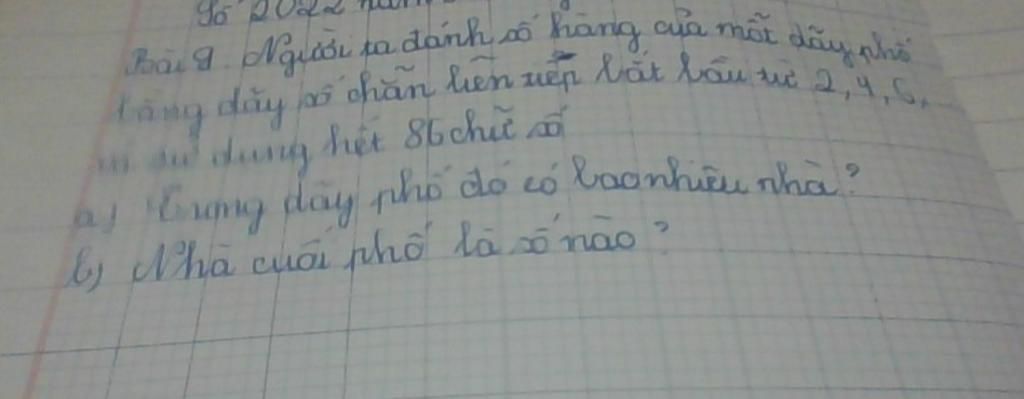 số 2022
Bài 9. Người ta đánh số hàng của mỗi dãy phố
bằng dãy số chẵn liên tiếp bắt đầu từ 2, 4, 6,
sử dụng hết 86 chữ số
a) dãy phố đó có bao nhiêu nhà?
b) Nhà cuối phố là số nào?